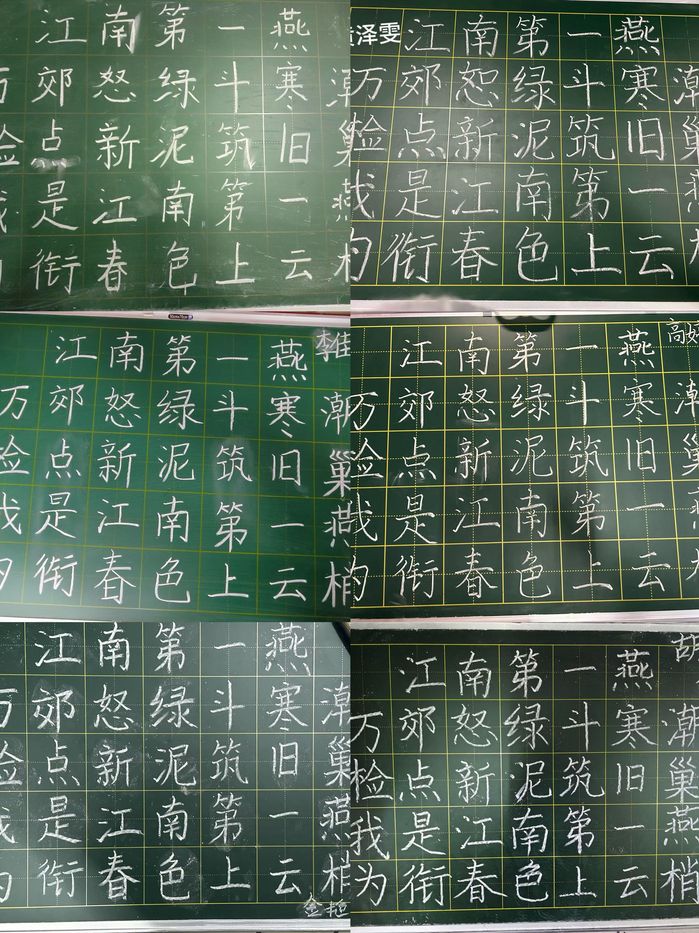 江南第一燕
万郊怒绿斗寒潮
检点新泥筑旧巢
我是江南第一燕
为衔春色上云
泽雯
江南第一燕
万郊恕绿斗寒潮
检点新泥筑旧巢
我是江南第一燕
为衔春色上云梢
李
江南第一燕
万郊怒绿斗寒潮
检点新泥筑旧巢
我是江南第一燕
为衔春色上云梢
高
江南第一燕
万郊怒绿斗寒潮
检点新泥筑旧巢
我是江南第一燕
为衔春色上云梢
江南第一燕
万郊怒绿斗寒潮
检点新泥筑旧巢
我是江南第一燕
为衔春色上云梢
金
胡
江南第一燕
万郊怒绿斗寒潮
检点新泥筑旧巢
我是江南第一燕
为衔春色上云梢